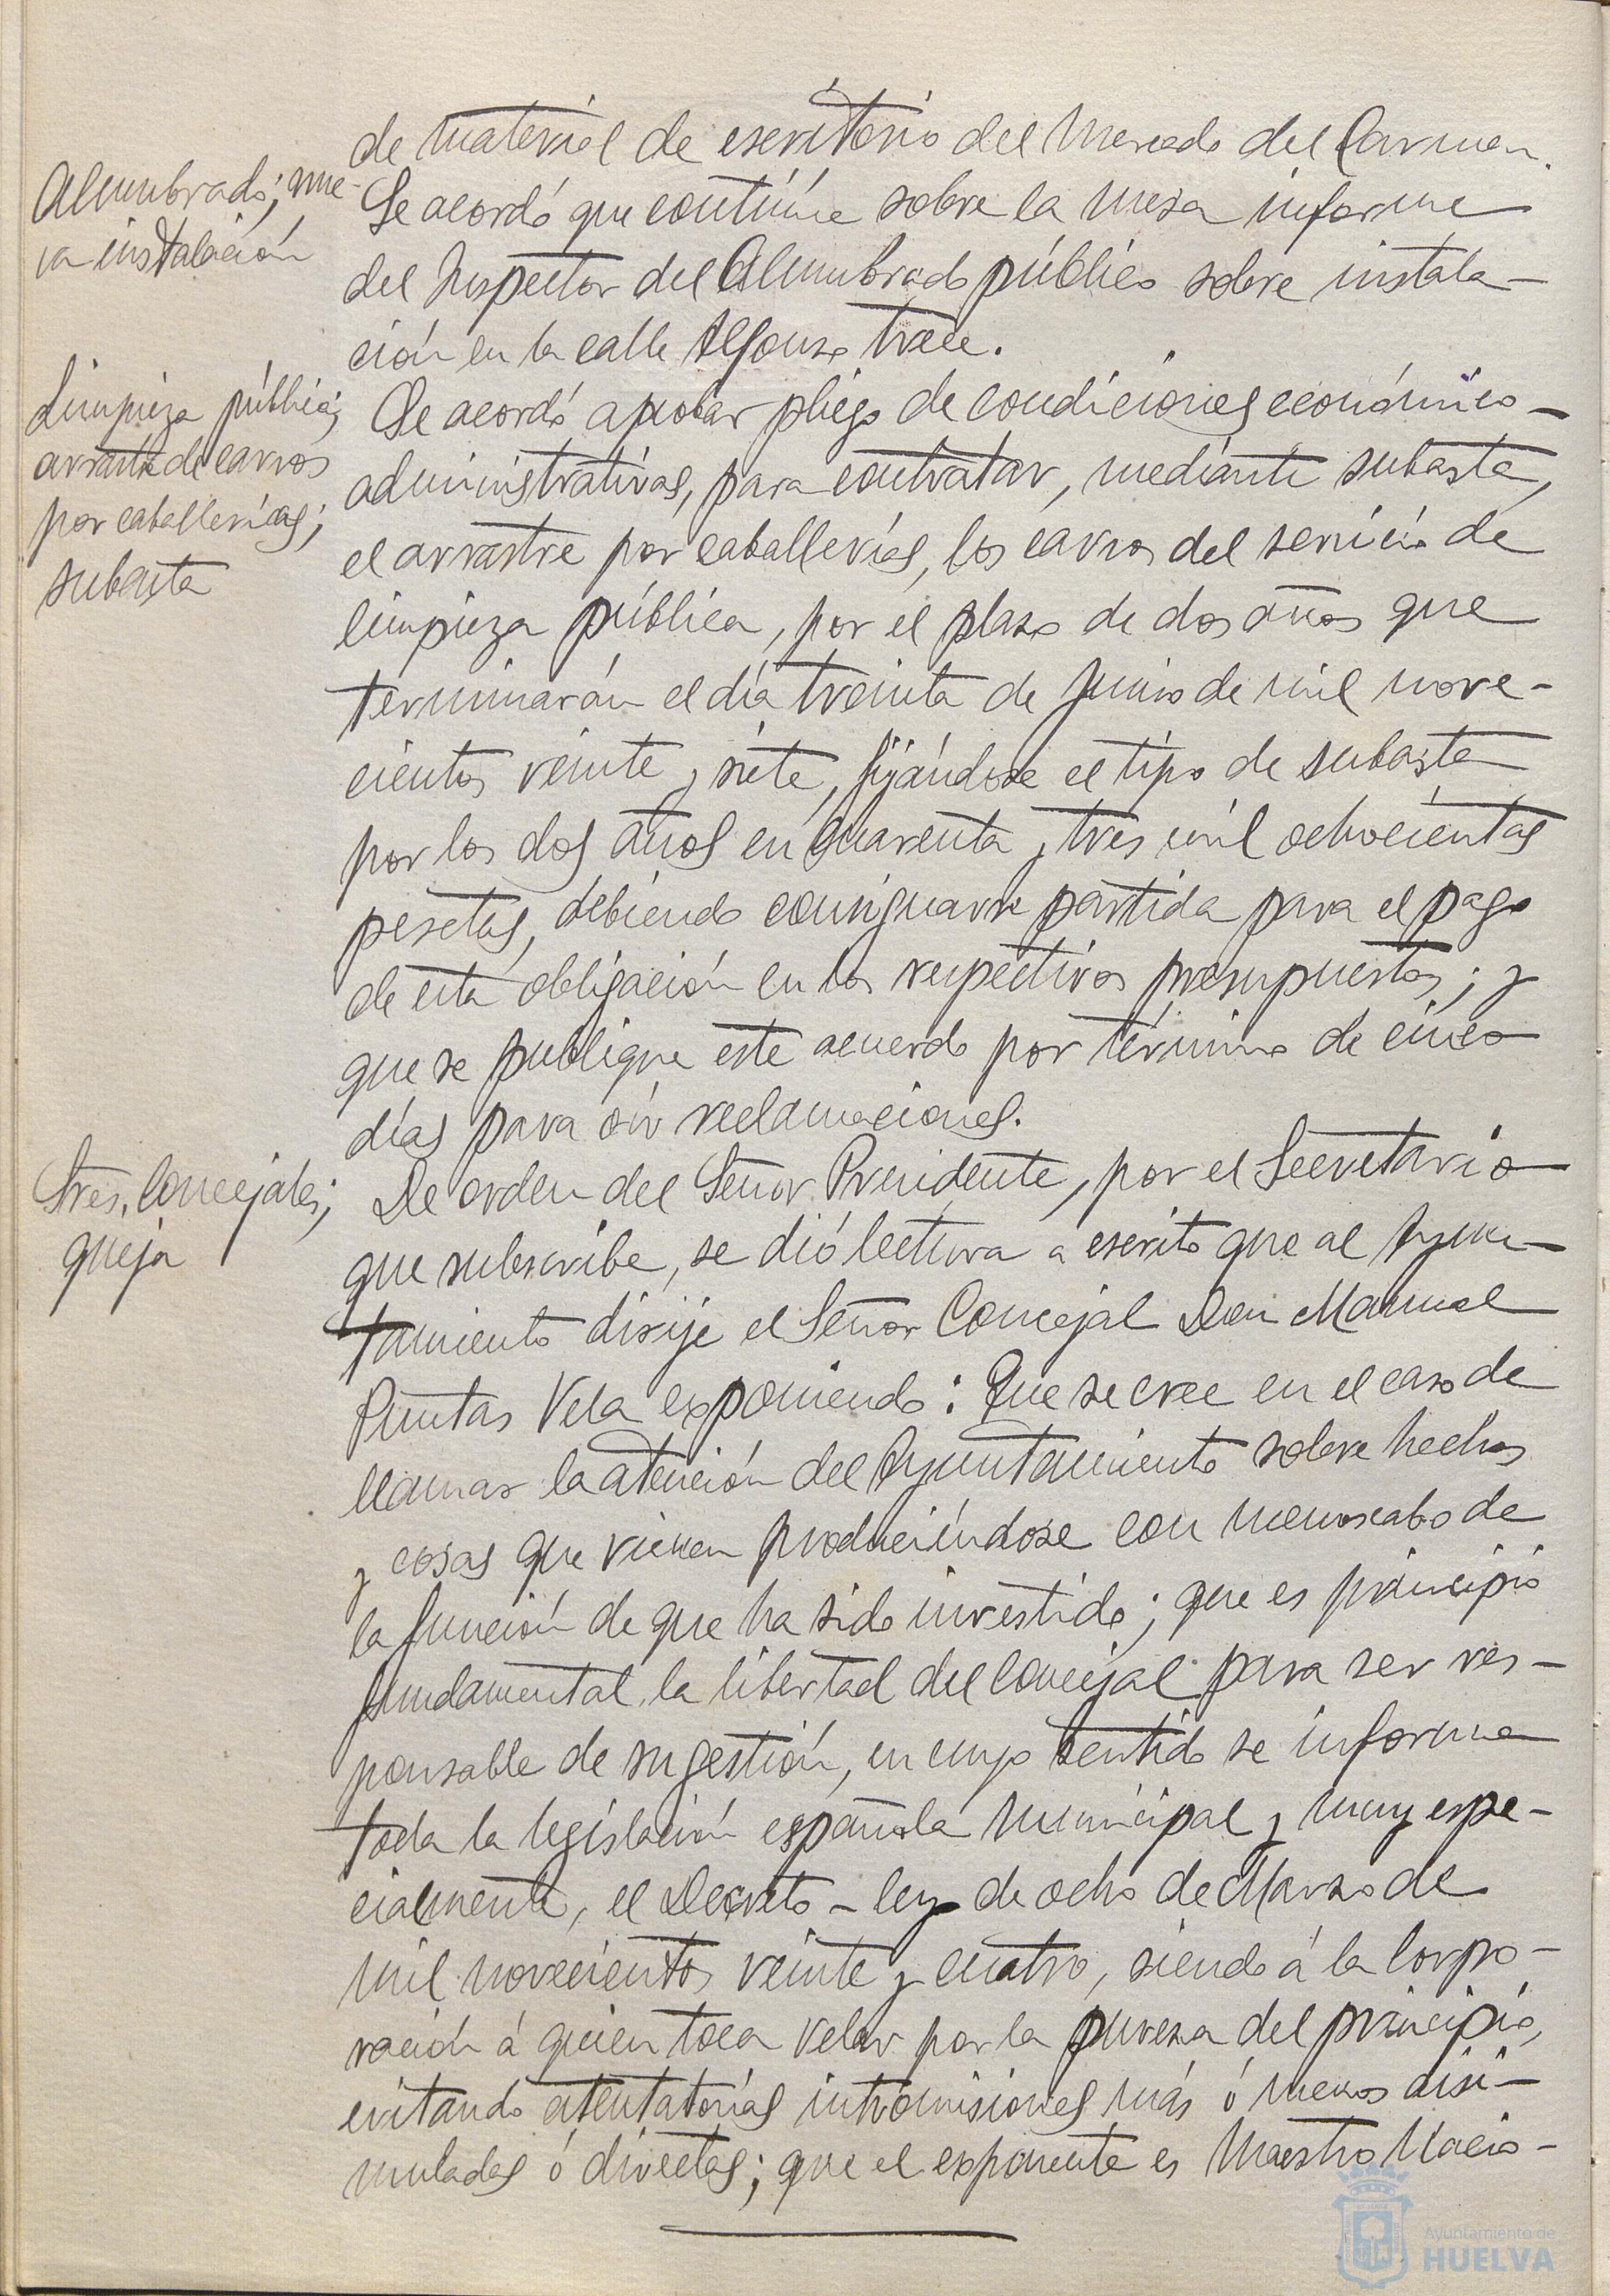 de material de escritorio del Mercado del Carmen.
Alumbrado; nue-
va instalación
Se acordó que continúe sobre la mesa informe
del Inspector del Alumbrado público sobre instala-
ción en la calle Alfonso trece.
Limpieza pública;
arrastre de carros
por caballerías;
subasta
Se acordó aprobar pliego de condiciones económico-
administrativas, para contratar, mediante subasta,
el arrastre por caballerías, los carros del servicio de
limpieza pública, por el plazo de dos años que
terminarán el día treinta de Junio de mil nove-
cientos veinte y siete, fijándose el tipo de subasta
por los dos años en cuarenta y tres mil ochocientas
pesetas, debiendo consignarse partida para el pago
de esta obligación en los respectivos presupuestos; y
que se publique este acuerdo por término de cinco
días para oir reclamaciones.
Sres. Concejales;
queja
De orden del Señor Presidente, por el Secretario
que subscribe, se dió lectura a escrito que al Ayun-
tamiento dirije el Señor Concejal Don Manuel
Puntas Vela exponiendo: Que se cree en el caso de
llamar la atención del Ayuntamiento sobre hechos
y cosas que vienen produciéndose con menoscabo de
la función de que ha sido investido; que es principio
fundamental la libertad del Concejal para ser res-
ponsable de su gestión, en cuyo sentido se informa
toda la legislación española municipal y muy espe-
cialmente, el Decreto-ley de ocho de Marzo de
mil novecientos veinte y cuatro, siendo á la Corpo-
ración á quien toca velar por la pureza del principio,
evitando atentatorias intromisiones más ó menos disi-
muladas ó directas; que el exponente es Maestro Nacio-
Ayuntamiento de
HUELVA